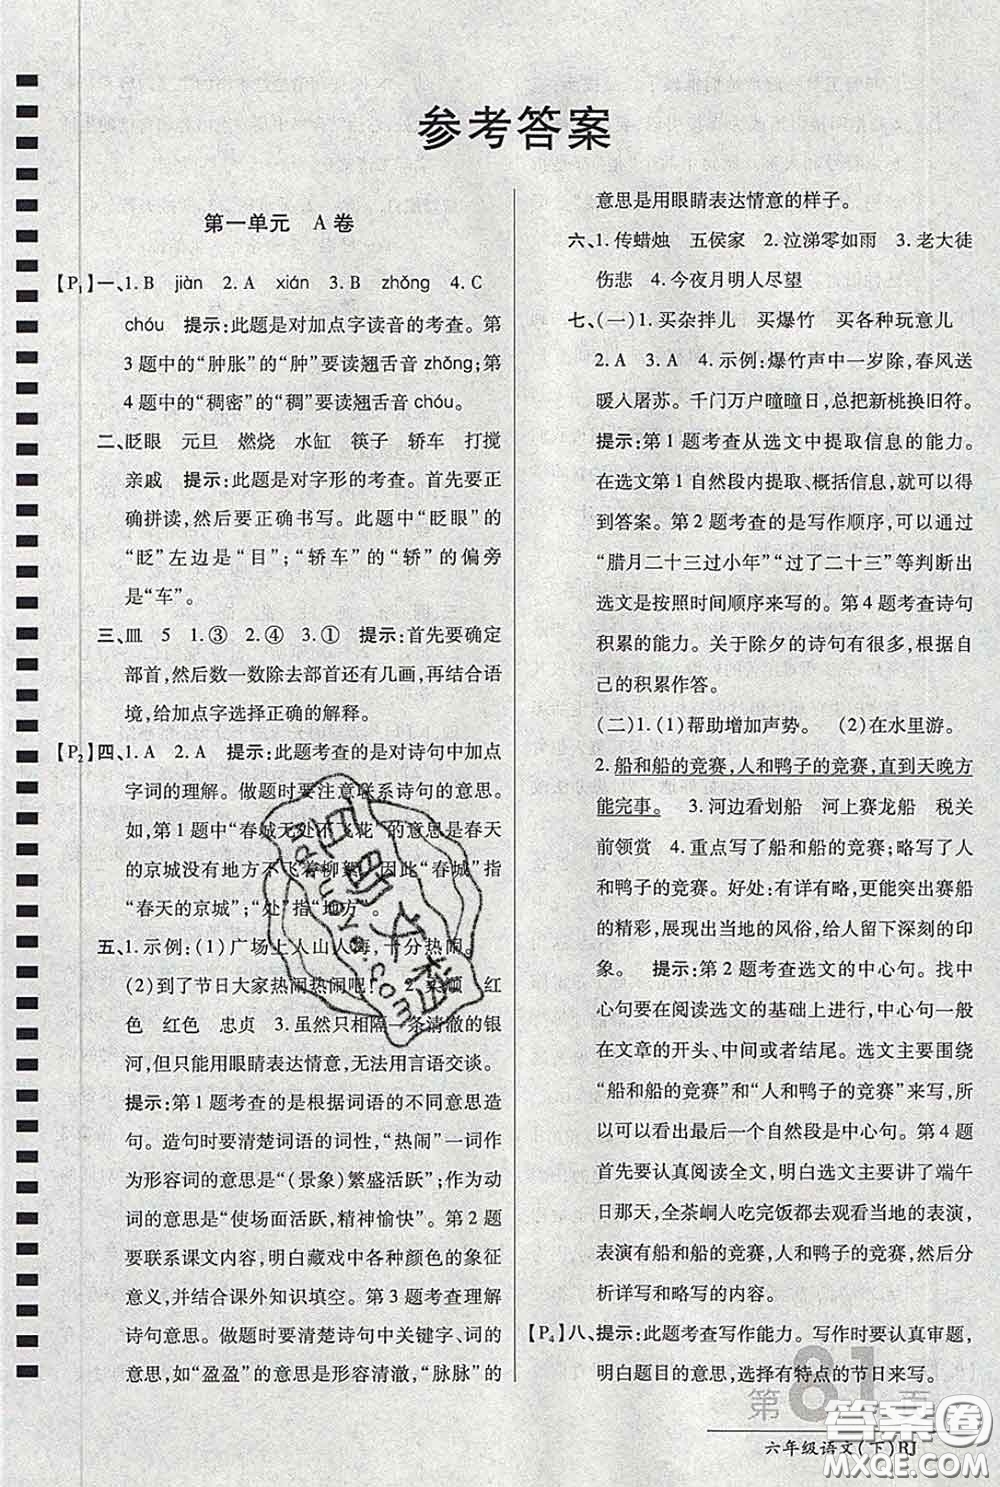 参考答案
第一单元 A卷
【P1】一、1. B jiàn 2. A xián 3. B zhǒng 4. C
chóu 提示:此题是对加点字读音的考查。第
3题中的“肿胀”的“肿”要读翘舌音zhǒng;第
4题中的“稠密”的“稠”要读翘舌音chóu。
二、眨眼 元旦 燃烧 水缸 筷子 轿车 打搅
亲戚 提示:此题是对字形的考查。首先要正
确拼读,然后要正确书写。此题中“眨眼”的
“眨”左边是“目”;“轿车”的“轿”的偏旁
是“车”。
三、皿 5 1.③ 2.④ 3.① 提示:首先要确定
部首,然后数一数除去部首还有几画,再结合语
境,给加点字选择正确的解释。
【P2】四、1. A 2. A 提示:此题考查的是对诗句中加点
字词的理解。做题时要注意联系诗句的意思。
如,第1题中“春城无处不飞花”的意思是春天
的京城没有地方不飞着柳絮,因此“春城”指
“春天的京城”;“处”指“地方”。
五、1. 示例:(1)广场上人山人海,十分热闹。
(2)到了节日大家热闹热闹吧! 2. 柔顺 红
色 红色 忠贞 3. 虽然只相隔一条清澈的银
河,但只能用眼睛表达情意,无法用言语交谈。
提示:第1题考查的是根据词语的不同意思造
句。造句时要清楚词语的词性,“热闹”一词作
为形容词的意思是“(景象)繁盛活跃”;作为动
词的意思是“使场面活跃,精神愉快”。第2题
要联系课文内容,明白藏戏中各种颜色的象征
意义,并结合课外知识填空。第3题考查理解
诗句意思。做题时要清楚诗句中关键字、词的
意思,如“盈盈”的意思是形容清澈,“脉脉”的
意思是用眼睛表达情意的样子。
六、1. 传蜡烛 五侯家 2. 泣涕零如雨 3. 老大徒
伤悲 4. 今夜月明人尽望
七、(一)1. 买杂拌儿 买爆竹 买各种玩意儿
2. A 3. A 4. 示例:爆竹声中一岁除,春风送
暖入屠苏。千门万户曈曈日,总把新桃换旧符。
提示:第1题考查从选文中提取信息的能力。
在选文第1自然段内提取、概括信息,就可以
得到答案。第2题考查的是写作顺序,可以通过
“腊月二十三过小年”“过了二十三”等判断出
选文是按照时间顺序来写的。第4题考查诗句
积累的能力。关于除夕的诗句有很多,根据自
己的积累作答。
(二)1.(1)帮助增加声势。 (2)在水里游。
2. 船和船的竞赛,人和鸭子的竞赛,直到天晚方
能完事。 3. 河边看划船 河上赛龙船 税关
前领赏 4. 重点写了船和船的竞赛;略写了人
和鸭子的竞赛。好处:有详有略,更能突出赛船
的精彩,展现出当地的风俗,给人留下深刻的印
象。 提示:第2题考查选文的中心句。找中
心句要在阅读选文的基础上进行,中心句一般
在文章的开头、中间或者结尾。选文主要围绕
“船和船的竞赛”和“人和鸭子的竞赛”来写,所
以可以看出最后一个自然段是中心句。第4题
首先要认真阅读全文,明白选文主要讲了端午
日那天,全茶峒人吃完饭都去观看当地的表演,
表演有船和船的竞赛、人和鸭子的竞赛,然后分
析详写和略写的内容。
【P4】八、提示:此题考查写作能力。写作时要认真审题,
明白题目的意思,选择有特点的节日来写。
第81页
六年级语文(下)RJ
答案卷
MXQE.COM